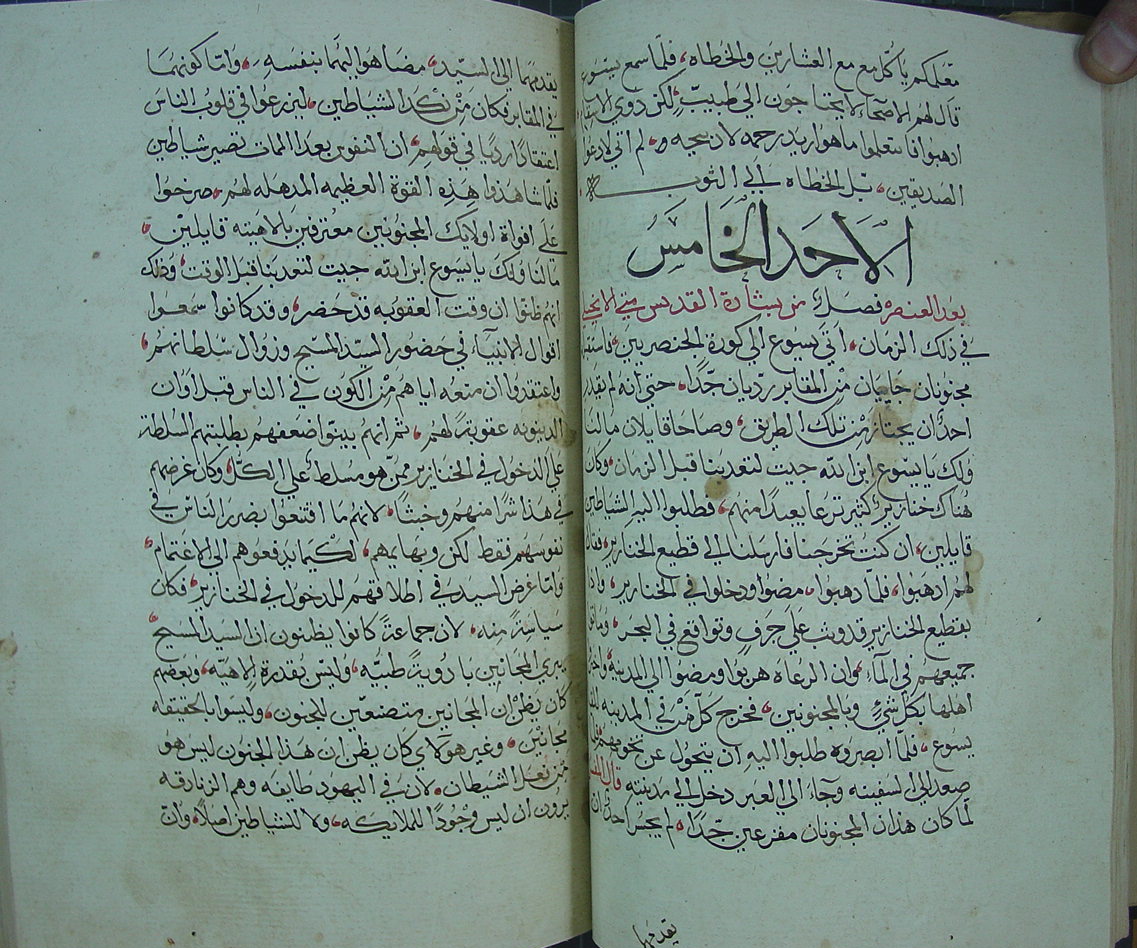 معلمكم ياكل مع العشارين والخطاه، فلما سمع يسوع
قال لهم الاصحآء لا يحتاجون الى طبيبٍ، لكن ذوي الاسقا
اذهبوا فا تعلموا ما هوا اريد رحمه لا ذبيحه و، لم اتي لادعوا
الصديقين، بل الخطاه الى التوبه
الاحد الخامس
بعد العنصره فصل من بشارة القديس متي الانجيلي
في ذلك الزمان، اتى يسوع الى كورة الجنصريين، فاستقبله
مجنونان جايبان من المقابر رديان جدًا، حتى انه لم يقدر
احدًان يجتاز من تلك الطريق، وصاحا قايلان ما لنا
ولك يا يسوع ابن الله جيت لتعدبنا قبل الزمان، وكان
هناك خنازير كثير ترعا بعيدًا منهم، فطلبوا اليه الشياطين
قايلين، ان كنت تخرجنا فارسلنا الي قطيع الخنازير، فقال
لهم اذهبوا، فلما ذهبوا، مضوا ودخلوا في الخنازير، واذا
بقطيع الخنازير قد وثب على جرفٍ وتواقع في البحر، ومات
جميعهم في المآء، وان الرعاة هربوا ومضوا الى المدينة، واخبروا
اهلها بكل شيءٍ وبالمجنونين، فخرج كل من في المدينه للقا
يسوع، فلما ابصروه طلبوا اليه ان يتحول عن تخومهم،
صعد الى السفينه وجآء الى العبر دخل الى مدينته قال المفسر
لما كان هذان المجنونان مفزعين جدًا، لم يجسر احدًا ان
يقدمهما
يقدمهما الى السيد، مضا هوا اليهما بنفسه، واما كونهما
في المقابر فكان من نكد الشياطين، ليزرعوا في قلوب الناس
اعتقادًا رديًا في قولهم، ان النفوس بعد الممات تصير شياطين
فلما شاهدوا هذه القوة العظيمه المذهله لهم، صرخوا
على افواة اولايك المجنونين معترفين بالاهيته قايلين،
ما لنا ولك يا يسوع ابن الله جيت لتعدبنا قبل الوقت، وذلك
انهم ظنوا ان وقت العقوبه قد حضر، وقد كانوا سمعوا
اقوال الانبيآء في حضور السيد المسيح وزوال سلطانهم،
واعتقدوا ان منعه اياهم من الكون في الناس قبل اوان
الدينونه عقوبةً لهم، ثم انهم بينوا ضعفهم بطلبتهم السلطة
على الدخول في الخنازير ممن هو مسلط على الكل، وكان غرضهم
في هذا شرًا منهم وخبثًا، لانهم ما اقتنعوا بضرر الناس في
نفوسهم فقط لكن وبهايمهم، لكيما يدفعوهم الى الاغتمام،
واما غرض السيد في اطلاقهم للدخول في الخنازير، فكان
سياسةً منه، لان جماعةً كانوا يظنون ان السيد المسيح
يبري المجانين بادويةً طبيه، وليس بقدرة الاهية، وبعضهم
كان يظن ان المجانين متصنعين للجنون، وليسوا بالحقيقه
مجانين، وغير هولاي كان يظن ان هذا الجنون ليس هو
من فعل الشيطان، لان في اليهود طايفه وهم الزنادقه
يرون ان ليس وجودًا للملايكه، ولا للشياطين اصلًا، وان